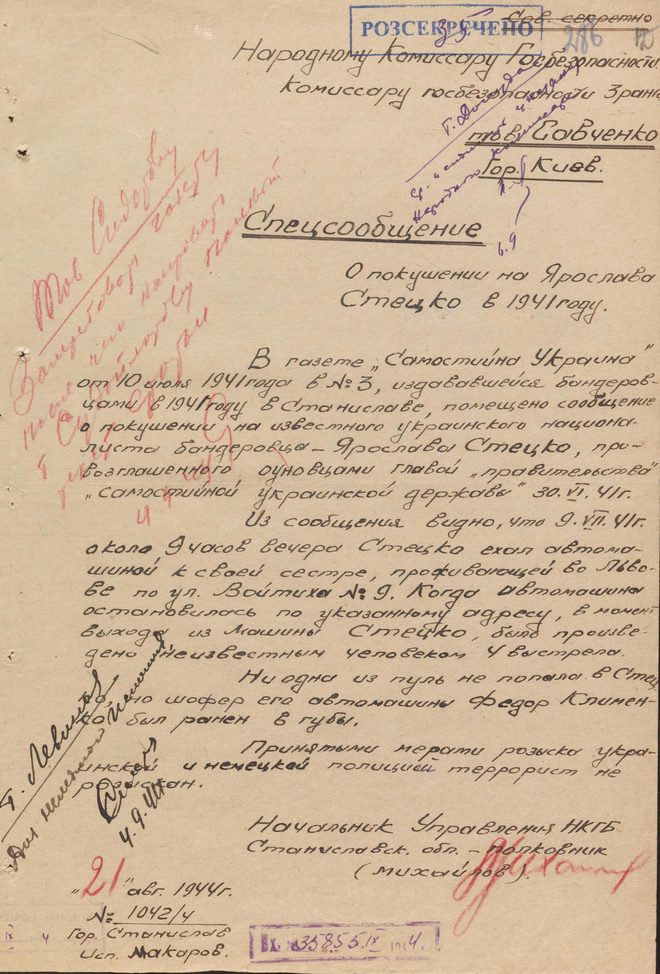 Сов. секретно
РОЗСЕКРЕЧЕНО
35
286
Народному Комиссару Госбезопасности
Комиссару госбезопасности 3 ранг
тов. Савченко
Гор. Киев.
Спецсообщение
О покушении на Ярослава
Стецко в 1941 году.
В газете „Самостийна Украина"
от 10 июля 1941 года в № 3, издававшейся бандеров-
цами в 1941 году в Станиславе, помещено сообщение
о покушении на известного украинского национа-
листа бандеровца – Ярослава Стецко, про-
возглашенного оуновцами главой „правительства"
„Самостийной украинской державы" 30.VI.41г.
Из сообщения видно, что 9.VII.41г.
около 9 часов вечера Стецко ехал автома-
шиной к своей сестре, проживающей во Льво-
ве по ул. Войтиха № 9. Когда автомашина
остановилась по указанному адресу, в момент
выхода из машины Стецко, было произве-
дено неизвестным человеком 4 выстрела.
Ни одна из пуль не попала в Стец
ко, но шофер его автомашины Федор Климен-
ко, был ранен в губы.
Принятыми мерами розыска укра-
инской и немецкой полицией террорист не
розыскан.
Начальник Управления НКГБ
Станиславск. обл. – полковник
(Михайлов).
„21" авг. 1944г.
№ 1042/4
Гор. Станислав
Исп. Макаров.
тов Сидорову
т. Левина
4.9.44
35855.IX 1944.